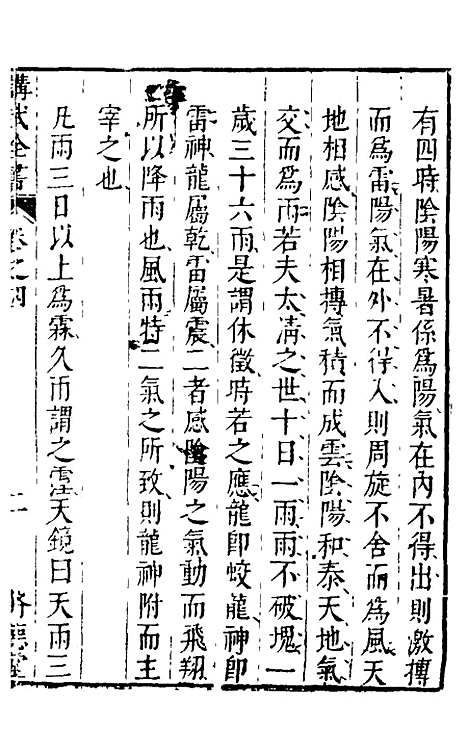 有四時陰陽寒暑係爲陽氣在內不得出則激摶
而爲雷陽氣在外不得入則周旋不舍而爲風天
地相感陰陽相摶氣積而成雲陰陽和泰天地氣
交而爲雨若夫太清之世十日一雨雨不破塊一
歲三十六雨是謂休徵時若之應龍卽蛟龍神卽
雷神龍屬乾雷屬震二者感陰陽之氣動而飛翔
所以降雨也風雨特二氣之所致則龍神附而主
宰之也
凡雨三日以上爲霖久雨謂之霪天鏡曰天雨三
講武全書 卷之四 二